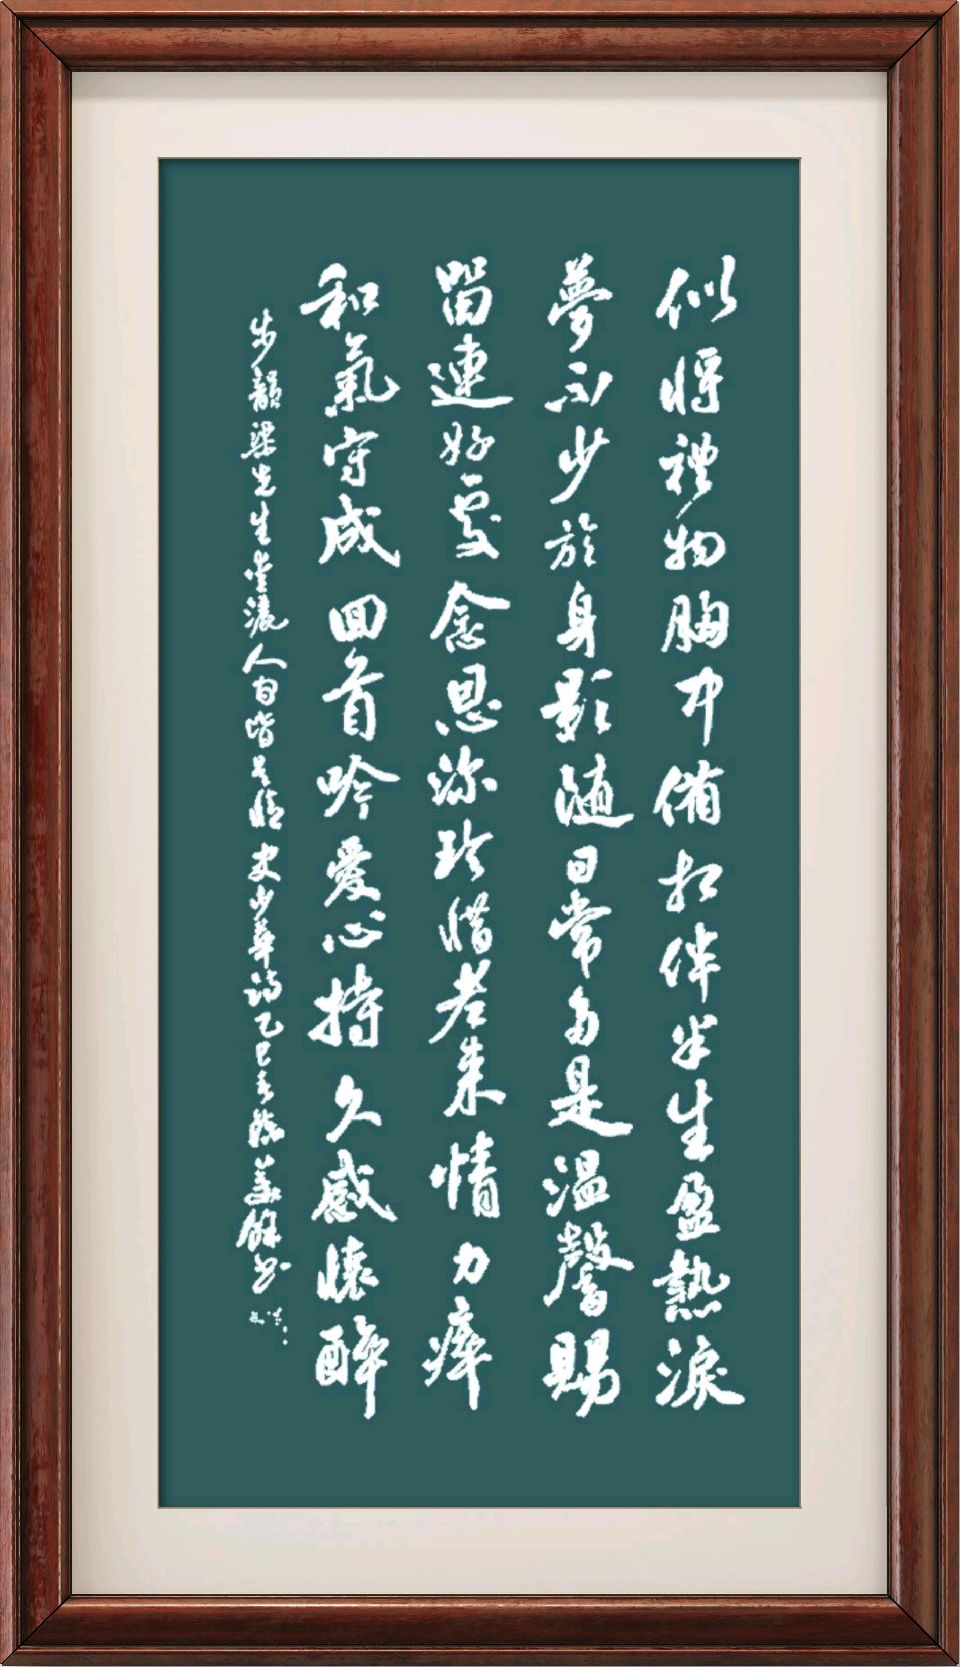 似將禮物胸中備相伴半生盈熱淚
夢不少於身影隨日常多是溫馨賜
留連好處念恩深珍惜老來情力瘁
和氣守成回首吟愛心持久感懷醉
步韻梁先生 人間皆是情史少華詩乙巳